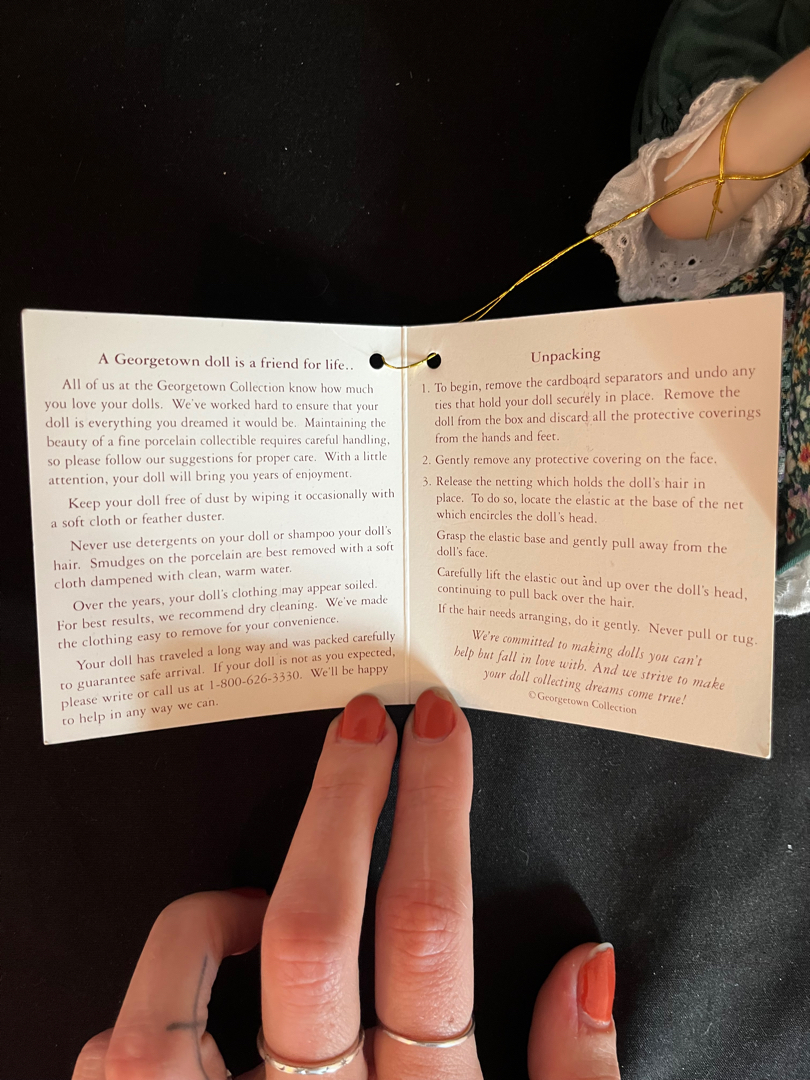 A Georgetown doll is a friend for life..
All of us at the Georgetown Collection know how much
you love your dolls. We've worked hard to ensure that your
doll is everything you dreamed it would be. Maintaining the
beauty of a fine porcelain collectible requires careful handling,
so please follow our suggestions for proper care. With a little
attention, your doll will bring you years of enjoyment.
Keep your doll free of dust by wiping it occasionally with
a soft cloth or feather duster.
Never use detergents on your doll or shampoo your doll's
hair. Smudges on the porcelain are best removed with a soft
cloth dampened with clean, warm water.
Over the years, your doll's clothing may appear soiled.
For best results, we recommend dry cleaning. We've made
the clothing easy to remove for your convenience.
Your doll has traveled a long way and was packed carefully
to guarantee safe arrival. If your doll is not as you expected,
please write or call us at 1-800-626-3330. We'll be happy
to help in any way we can.
Unpacking
1. To begin, remove the cardboard separators and undo any
ties that hold your doll securely in place. Remove the
doll from the box and discard all the protective coverings
from the hands and feet.
2. Gently remove any protective covering on the face.
3. Release the netting which holds the doll's hair in
place. To do so, locate the elastic at the base of the net
which encircles the doll's head.
Grasp the elastic base and gently pull away from the
doll's face.
Carefully lift the elastic out and up over the doll's head,
continuing to pull back over the hair.
If the hair needs arranging, do it gently. Never pull or tug.
We're committed to making dolls you can't
help but fall in love with. And we strive to make
your doll collecting dreams come true!
©Georgetown Collection